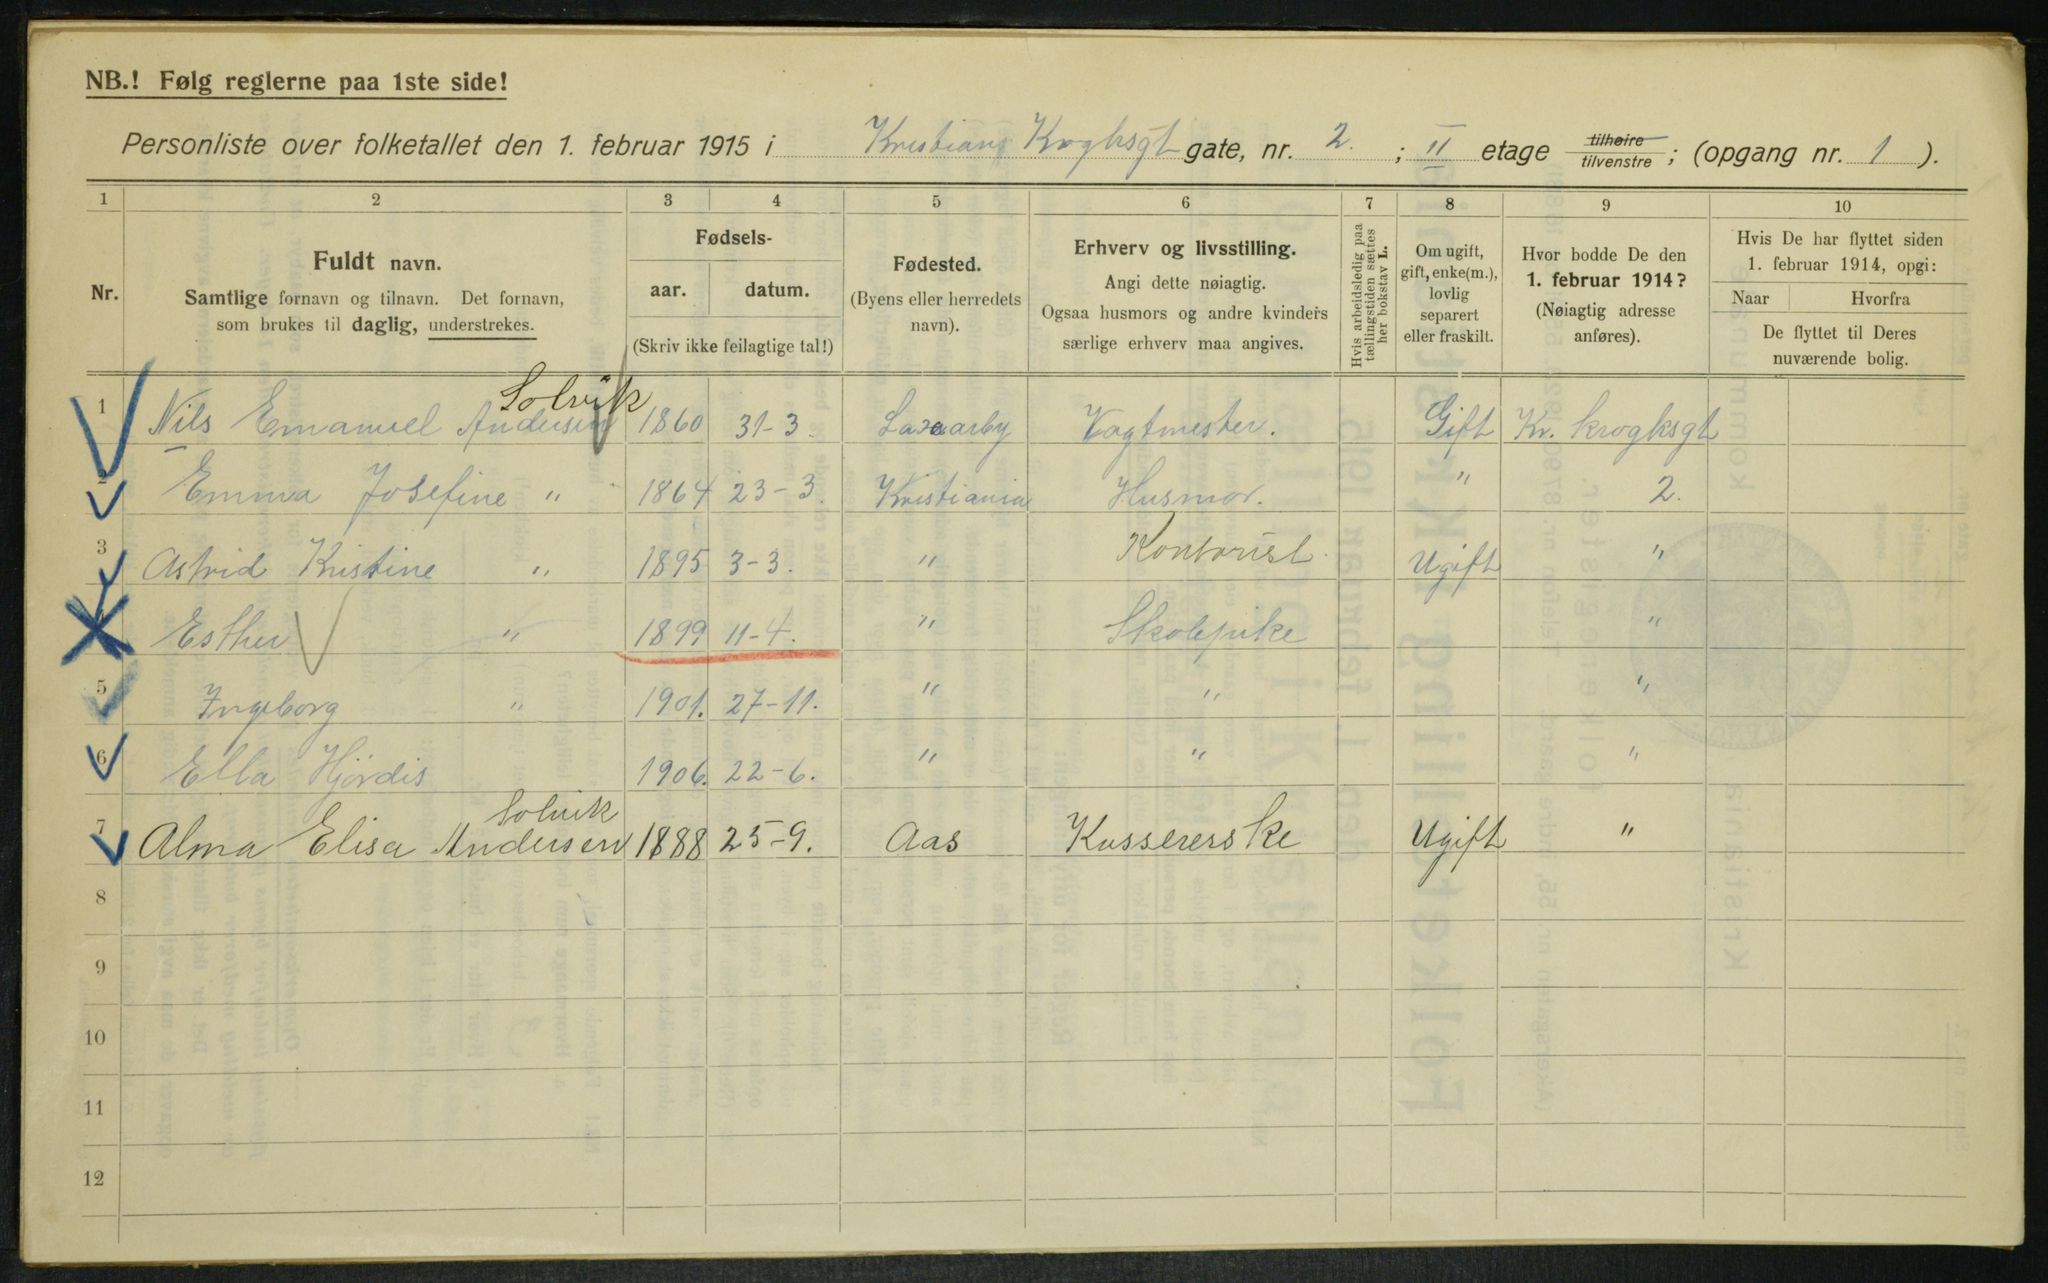 NB.! Følg reglerne paa 1ste side!
Personliste over folketallet den 1. februar 1915 i Kristians Kroghsgt gate, nr. 2. ; II etage tilhøire / tilvenstre ; (opgang nr. 1 ).
1 2 3 4 5 6 7 8 9 10
Nr.
Fuldt navn.
Samtlige fornavn og tilnavn. Det fornavn,
som brukes til daglig, understrekes.
Fødsels-
aar. datum.
(Skriv ikke feilagtige tal!)
Fødested.
(Byens eller herredets
navn).
Erhverv og livsstilling.
Angi dette nøiagtig.
Ogsaa husmors og andre kvinders
særlige erhverv maa angives.
Hvis arbeidsledig paa
tællingstiden sættes
her bokstav L.
Om ugift,
gift, enke(m.),
lovlig
separert
eller fraskilt.
Hvor bodde De den
1. februar 1914?
(Nøiagtig adresse
anføres).
Hvis De har flyttet siden
1. februar 1914, opgi:
Naar Hvorfra
De flyttet til Deres
nuværende bolig.
Solvik
1 Nils Emanuel Andersen 1860 31-3. Vagtmester. Gift Kr. Krogksgt
2 Emma Josefine " 1864 23-3. Kristiania Husmor. " 2.
3 Astrid Kristine " 1895 3-3. " Kontorist. Ugift "
4 Esther " 1899 11-4. " Skolepike "
5 Ingeborg " 1901. 27-11. " " "
6 Ella Hjördis 1906. 22-6. " " "
Solvik
7 Alma Elisa Andersen 1888 25-9. Aas Kassererske Ugift "
8
9
10
11
12